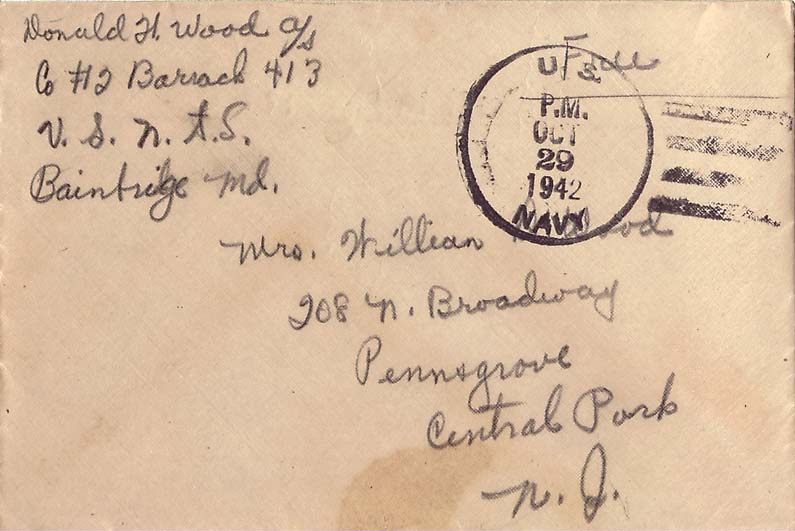 Donald H. Wood A/S
Co #12 Barrack 413
U. S. N. T. S.
Bainbrige Md.
U. S.
Free
P.M.
OCT
29
1942
NAVY
Mrs. William Wood
208 N. Broadway
Pennsgrove
Central Park
N. J.